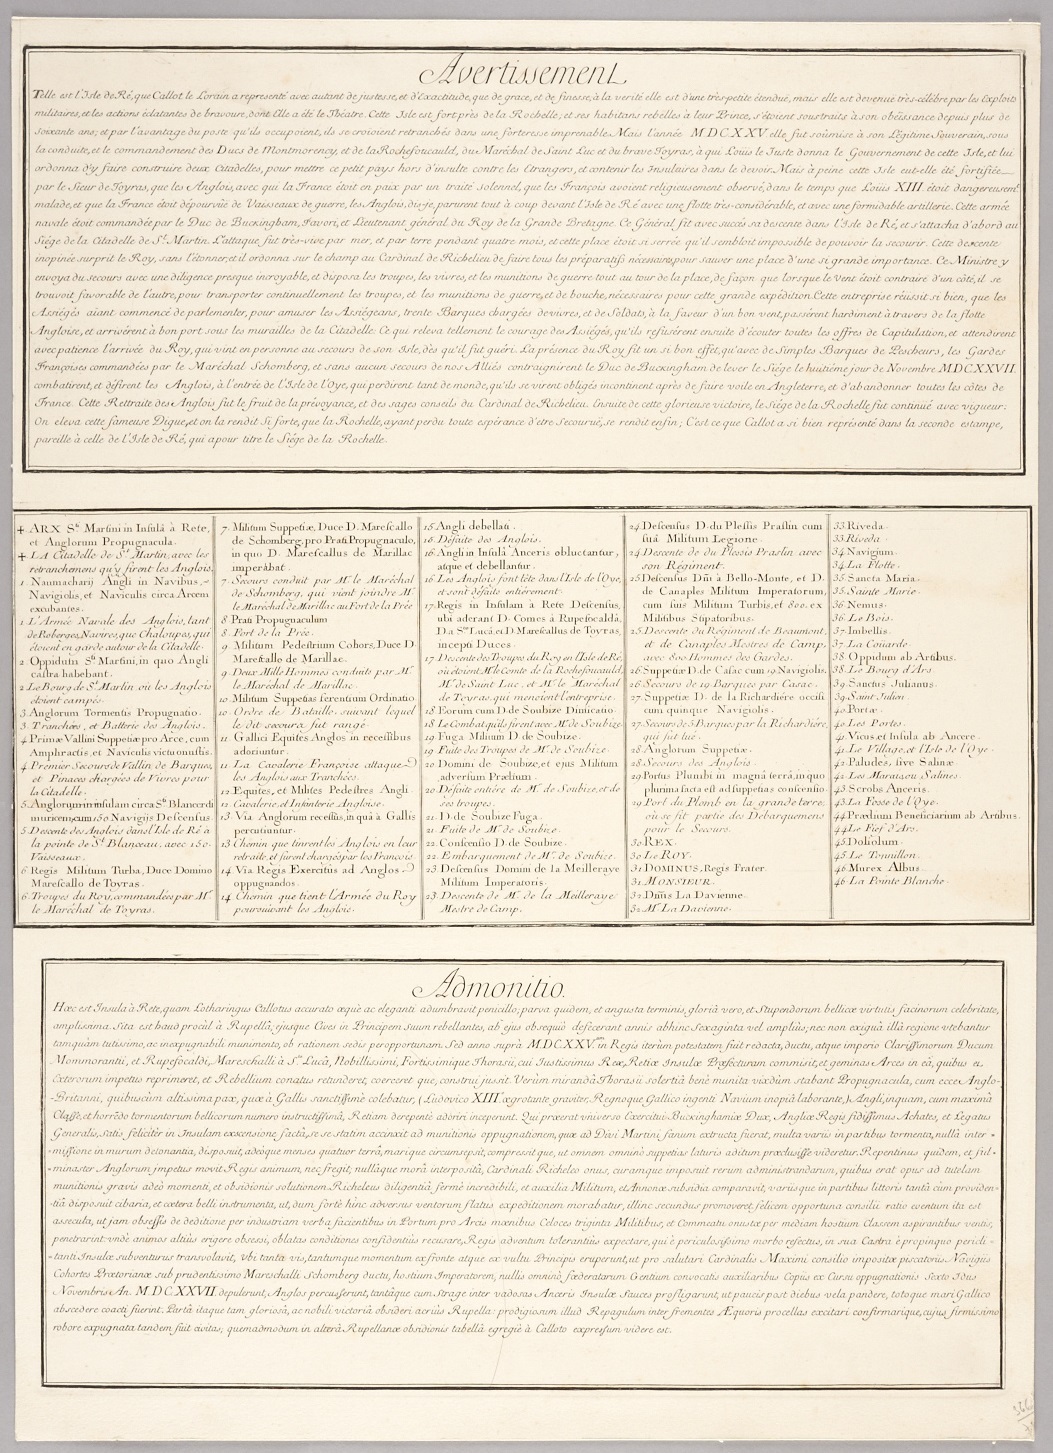 Avertissement
Telle est l'Isle de Ré, que Callot le Lorain a representé avec autant de justesse, et d'Exactitude, que de grace, et de finesse, à la verité elle est d'une très-petite étendüe, mais elle est devenüe très-célébre par les Exploits
militaires, et les actions éclatantes de bravoure, dont Elle a été le Théatre. Cette Isle est fort près de la Rochelle, et ses habitans rebelles à leur Prince, s'étoient soustraits à son obéissance depuis plus de
soixante ans; et par l'avantage du poste qu'ils occupoient, ils se croioient retranchés dans une forteresse imprenable. Mais l'année MDCXXV. elle fut soümise à son Légitime Souverain, sous
la conduite, et le commandement des Ducs de Montmorency, et de la Rochefoucauld, du Maréchal de Saint Luc et du brave Toyras, à qui Loüis le Juste donna le Gouvernement de cette Isle, et lui
ordonna d'y faire construire deux Citadelles, pour mettre ce petit pays hors d'insulte contre les Etrangers, et contenir les Insulaires dans le devoir. Mais à peine cette Isle eut-elle été fortifiée
par le Sieur de Toyras, que les Anglois, avec qui la France étoit en paix par un traité solennel, que les François avoient religieusement observé, dans le temps que Loüis XIII. étoit dangereusemt.
malade, et que la France étoit dépourvüe de Vaisseaux de guerre, les Anglois, dis-je, parurent tout à coup devant l'Isle de Ré avec une flotte très-considérable, et avec une formidable artillerie. Cette armée
navale étoit commandée par le Duc de Buckingham, Favori, et Lieutenant général du Roy de la Grande Bretagne. Ce Général fit avec succès sa descente dans l'Isle de Ré, et s'attacha d'abord au
Siége de la Citadelle de St. Martin. L'attaque fut très-vive par mer, et par terre pendant quatre mois, et cette place étoit si serrée qu'il sembloit impossible de pouvoir la secourir. Cette descente
inopinée surprit le Roy, sans l'étonner, et il ordonna sur le champ au Cardinal de Richelieu de faire tous les préparatifs nécessaires, pour sauver une place d'une si grande importance. Ce Ministre y
envoya du secours avec une diligence presque incroyable, et disposa les troupes, les vivres, et les munitions de guerre tout au tour de la place, de façon que lorsque le vent étoit contraire d'un côté, il se
trouvoit favorable de l'autre, pour transporter continuellement les troupes, et les munitions de guerre, et de bouche, nécessaires pour cette grande expédition. Cette entreprise réussit si bien, que les
Assiégés aiant commencé de parlementer, pour amuser les Assiégeans, trente Barques chargées de vivres, et de Soldats, à la faveur d'un bon vent, passérent hardiment à travers de la flotte
Angloise, et arrivérent à bon port sous les murailles de la Citadelle. Ce qui releva tellement le courage des Assiégés, qu'ils refusérent ensuite d'écouter toutes les offres de Capitulation, et attendirent
avec patience l'arrivée du Roy, qui vint en personne au secours de son Isle, dès qu'il fut guéri. La présence du Roy fit un si bon effêt, qu'avec de Simples Barques de Pescheurs, les Gardes
Françoises commandées par le Maréchal Schomberg, et sans aucun secours de nos Alliés contraignirent le Duc de Buckingham de lever le Siége le huitiéme jour de Novembre MDCXXVII.
combatirent, et défirent les Anglois, à l'entrée de l'Isle de l'Oye, qui perdirent tant de monde, qu'ils se virent obligés incontinent après de faire voile en Angleterre, et d'abandonner toutes les côtes de
France. Cette Rettraite des Anglois fut le fruit de la prévoyance, et des sages conseils du Cardinal de Richelieu. Ensuite de cette glorieuse victoire, le Siége de la Rochelle fut continué avec vigueur:
On eleva cette fameuse Digue, et on la rendit si forte, que la Rochelle, ayant perdu toute espérance d'être Secouruë, se rendit enfin; C'est ce que Callot a si bien représenté dans la seconde estampe,
pareille à celle de l'Isle de Ré, qui a pour titre le Siége de la Rochelle.
+ ARX Sti Martini in Insulâ à Rete,
et Anglorum Propugnacula.
+ LA Citadelle de St. Martin, avec les
retranchemens qu'y firent les Anglois.
1. Naumacharij Angli in Navibus,
Navigiolis, et Naviculis circa Arcem
excubantes.
1 L'Armée Navale des Anglois, tant
de Roberges, Navires, que Chaloupes, qui
étoient en garde autour de la Citadelle.
2 Oppidum Sti Martini, in quo Angli
castra habebant.
2 Le Bourg de St. Martin où les Anglois
étoient campés.
3. Anglorum Tormentis Propugnatio.
3 Tranchées, et Batterie des Anglois.
4 Primæ Vallini Suppetiæ pro Arce, cum
Amphractis, et Naviculis victu onustis.
4 Prémier Secours de Vallin de Barques,
et Pinaces chargées de Vivres pour
la Citadelle.
5. Anglorum in insulam circa Sti Blancerdi
muricem, cum 150 Navigijs Descensus.
5. Descente des Anglois dans l'Isle de Ré à
la pointe de St. Blanceau, avec 150.
Vaisseaux.
6 Regis Militum Turba, Duce Domino
Marescallo de Toyras.
6. Troupes du Roy, commandées par Mr
le Maréchal de Toyras.
7. Militum Suppetiæ, Duce D. Marescallo
de Schomberg, pro Prati Propugnaculo,
in quo D. Marescallus de Marillac
imperabat.
7. Secours conduit par Mr. le Maréchal
de Schomberg, qui vient joindre Mr
le Maréchal de Marillac au Fort de la Prée
8 Prati Propugnaculum
8. Fort de la Prée.
9 Militum Pedestrium Cohors, Duce D.
Marestallo de Marillac.
9 Deux Mille Hommes conduits par Mr.
le Maréchal de Marillac.
10 Militum Suppetias ferentium Ordinatio
10. Ordre de Bataille suivant lequel
le dit secours fut rangé.
11. Gallici Equites Anglos in recessibus
adoriuntur.
11 La Cavalerie Françoise attaque
les Anglois aux Tranchées.
12. Æquites, et Milites Pedestres Angli.
12. Cavalerie, et Infanterie Angloise.
13. Via Anglorum recessûs, in quâ à Gallis
percutiuntur.
13 Chemin que tinrent les Anglois en leur
retraite, et furent chargés par les François
14 Via Regis Exercitus ad Anglos
oppugnandos.
14 Chemin que tient l'Armée du Roy
poursuivant les Anglois.
15 Angli debellati.
15. Défaite des Anglois.
16. Angli in Insulâ Anceris obluctantur,
atque et debellantur.
16 Les Anglois font tête dans l'Isle de l'Oye,
et sont défaits entiérement.
17. Regis in Insulam à Rete Descensus,
ubi aderant D. Comes à Rupefocaldâ,
D. à Sto. Lucâ, et D. Marescallus de Toyras
incepti Duces.
17 Descente des Troupes du Roy en l'Isle de Ré,
où étoient Mr. le Comte de la Rochefoucauld,
Mr. de Saint Luc, et Mr. le Maréchal
de Toyras qui menoient l'entreprise.
18 Eorum cum D. de Soubize Dimicatio.
18 Le Combat qu'ils firent avec Mr. de Soubize.
19. Fuga Militum D. de Soubize.
19 Fuite des Troupes de Mr. de Soubize.
20 Domini de Soubize, et ejus Militum
adversum Prælium.
20 Défaite entiére de Mr. de Soubize, et de
ses troupes.
21. D. de Soubize Fuga.
21. Fuite de Mr. de Soubize.
22. Consensio D. de Soubize.
22. Embarquement de Mr. de Soubize.
23 Descensus Domini de la Meilleraye
Militum Imperatoris.
23. Descente de Mr. de la Meilleraye
Mestre de Camp.
24. Descensus D. du Plessis Praslin cum
suâ Militum Legione.
24. Descente de du Plessis Praslin avec
son Régiment.
25. Descensus Dni à Bello-Monte, et D.
de Canaples Militum Imperatorum,
cum suis Militum Turbis, et 800. ex
Militibus Stipatoribus.
25. Descente du Régiment de Beaumont,
et de Canaples Mestres de Camp,
avec 800 Hommes des Gardes.
26 Suppetiæ D. de Casac cum 19 Navigiolis.
26 Secours de 19 Barques par Casac.
27. Suppetiæ D. de la Richardiére occisi
cum quinque Navigiolis.
27. Secours de 5 Barques par la Richardiére,
qui fut tué.
28 Anglorum Suppetiæ.
28 Secours des Anglois.
29 Portus Plumbi in magnâ terrâ, in quo
plurima facta est ad suppetias consensio.
29 Port du Plomb en la grande terre,
où se fit partie des Débarquemens
pour le Secours.
30 REX.
30 Le ROY.
31 DOMINUS, Regis Frater.
31 MONSIEUR.
32 Dnus La Davienne.
32 Mr. La Davienne.
33 Riveda.
33. Riveda.
34 Navigium.
34 La Flotte.
35 Sancta Maria.
35. Sainte Marie.
36 Nemus.
36 Le Bois.
37. Imbellis.
37 La Couarde.
38 Oppidum ab Artibus.
38. Le Bourg d'Ars.
39 Sanctus Julianus.
39. Saint Julien.
40. Portæ.
40. Les Portes.
41. Vicus, et Insula ab Ancere.
41. Le Village, et l'Isle de l'Oye.
42. Paludes, sive Salinæ
42. Les Marais, ou Salines.
43. Scrobs Anceris.
43. La Fosse de l'Oye.
44 Prædium Beneficiarium ab Artibus.
44 Le Fief d'Ars.
45. Doliolum.
45. Le Tonnillon.
46 Murex Albus.
46. La Pointe Blanche.
Admonitio.
Hæc est Insula à Rete, quam Lotharingus Callotus accurato æquè ac eleganti adumbravit penicillo, parva quidem, et angusta terminis, gloriâ vero, et Stupendorum bellicæ virtutis facinorum celebritate,
amplissima. Sita est haud procùl à Rupellâ, ejusque Cives in Principem Suum rebellantes, ab ejus obsequiò desecerant annis abhinc Sexaginta vel ampliùs; nec non exiguâ illâ regione utebantur
tamquam tutissimo, ac inexpugnabili munimento, ob rationem sedis peropportunam. Sed anno suprà MDCXXV.um in Regis iterùm potestatem fuit redacta, ductu, atque imperio Clarissimorum Ducum
Mommorantii, et Rupefocaldi, Mareschalli à Sto Lucâ, Nobilissimi, Fortissimique Thorasii, cui Justissimus Rex, Retiæ Insulæ Præfecturam commisit, et geminas Arces in eâ, quibus et
Exterorum impetus reprimeret, et Rebellium conatus retunderet, coerceret que, construi jussit. Verùm mirandâ Thorasii solertiâ benè munita vixdùm stabant Propugnacula, cum ecce Anglo-
Britanni, quibuscum altissima pax, quæ à Gallis sanctissimè colebatur, (Ludovico XIII. ægrotante graviter, Regnoque Gallico ingenti Navium inopiâ laborante,) Angli, inquam, cum maximâ
Classe, et horrêdo tormentorum bellicorum numero instructissimâ, Retiam derepentè adoriri inceperunt. Qui præerat universo Exercitui Buckinghamiæ Dux, Angliæ Regis fidissimus Achates, et Legatus
Generalis, satis feliciter in Insulam exscensione factâ, se se statim accinxit ad munitionis oppugnationem, quæ ad Divi Martini fanum extructa fuerat, multa variis in partibus tormenta, nullâ inter-
-missione in murum detonantia, disposuit, adeòque menses quatuor terrâ, marique circumsepsit, compressit que, ut omnem omninò suppetias laturis aditum præclusisse videretur. Repentinus quidem, et ful-
-minaster Anglorum impetus movit Regis animum, nec fregit; nullâque morâ interpositâ, Cardinali Richeleo onus, curamque imposuit rerum administrandarum, quibus erat opus ad tutelam
munitionis gravis adeò momenti, et obsidionis solutionem. Richeleus diligentiâ fermè incredibili, et auxilia Militum, et Annonæ subsidia comparavit, variisque in partibus littoris tantâ cum providen-
-tiâ disposuit cibaria, et cætera belli instrumenta, ut, dum fortè hinc adversus ventorum flatus expeditionem morabatur, illinc secundus promoveret. felicem opportuna consilii ratio eventum ita est
assecula, ut jam obsessis de deditione per industriam verba facientibus in Portum pro Arcis mœnibus Celoces triginta Militibus, et Commeatu onustæ per mediam hostium Classem aspirantibus ventis,
penetrarint: undè animos altiùs erigere obsessi, oblatas conditiones confidentiùs recusare, Regis adventum tolerantiùs expectare, qui è periculosissimo morbo refectus, in sua Castra è propinquo pericli-
-tanti Insulæ subventurus transvolavit, Ubi tanta vis, tantumque momentum ex fronte atque ex vultu Principis eruperunt, ut pro salutari Cardinalis Maximi consilio impositæ piscatoriis Navigiis
Cohortes Prætorianæ sub prudentissimo Mareschalli Schomberg ductu, hostium Imperatorem, nullis omninò fœderatarum Gentium convocatis auxiliaribus Copiis ex Cursu oppugnationis Sexto Idus
Novembris An. MDCXXVII. depulerunt, Anglos percusserunt, tantâque cum Strage inter vadosas Anceris Insulæ Fauces profligarunt, ut paucis post diebus vela pandere, totoque mari Gallico
abscedere coacti fuerint. Partâ itaque tam gloriosâ, ac nobili victoriâ obsideri acriùs Rupella: prodigiosum illud Repagulum inter frementes Æquoris procellas excitari confirmarique, cujus firmissimo
robore expugnata tandem fuit civitas; quemadmodum in alterâ Rupellanæ obsidionis tabellâ egregiè à Calloto expressum videre est.